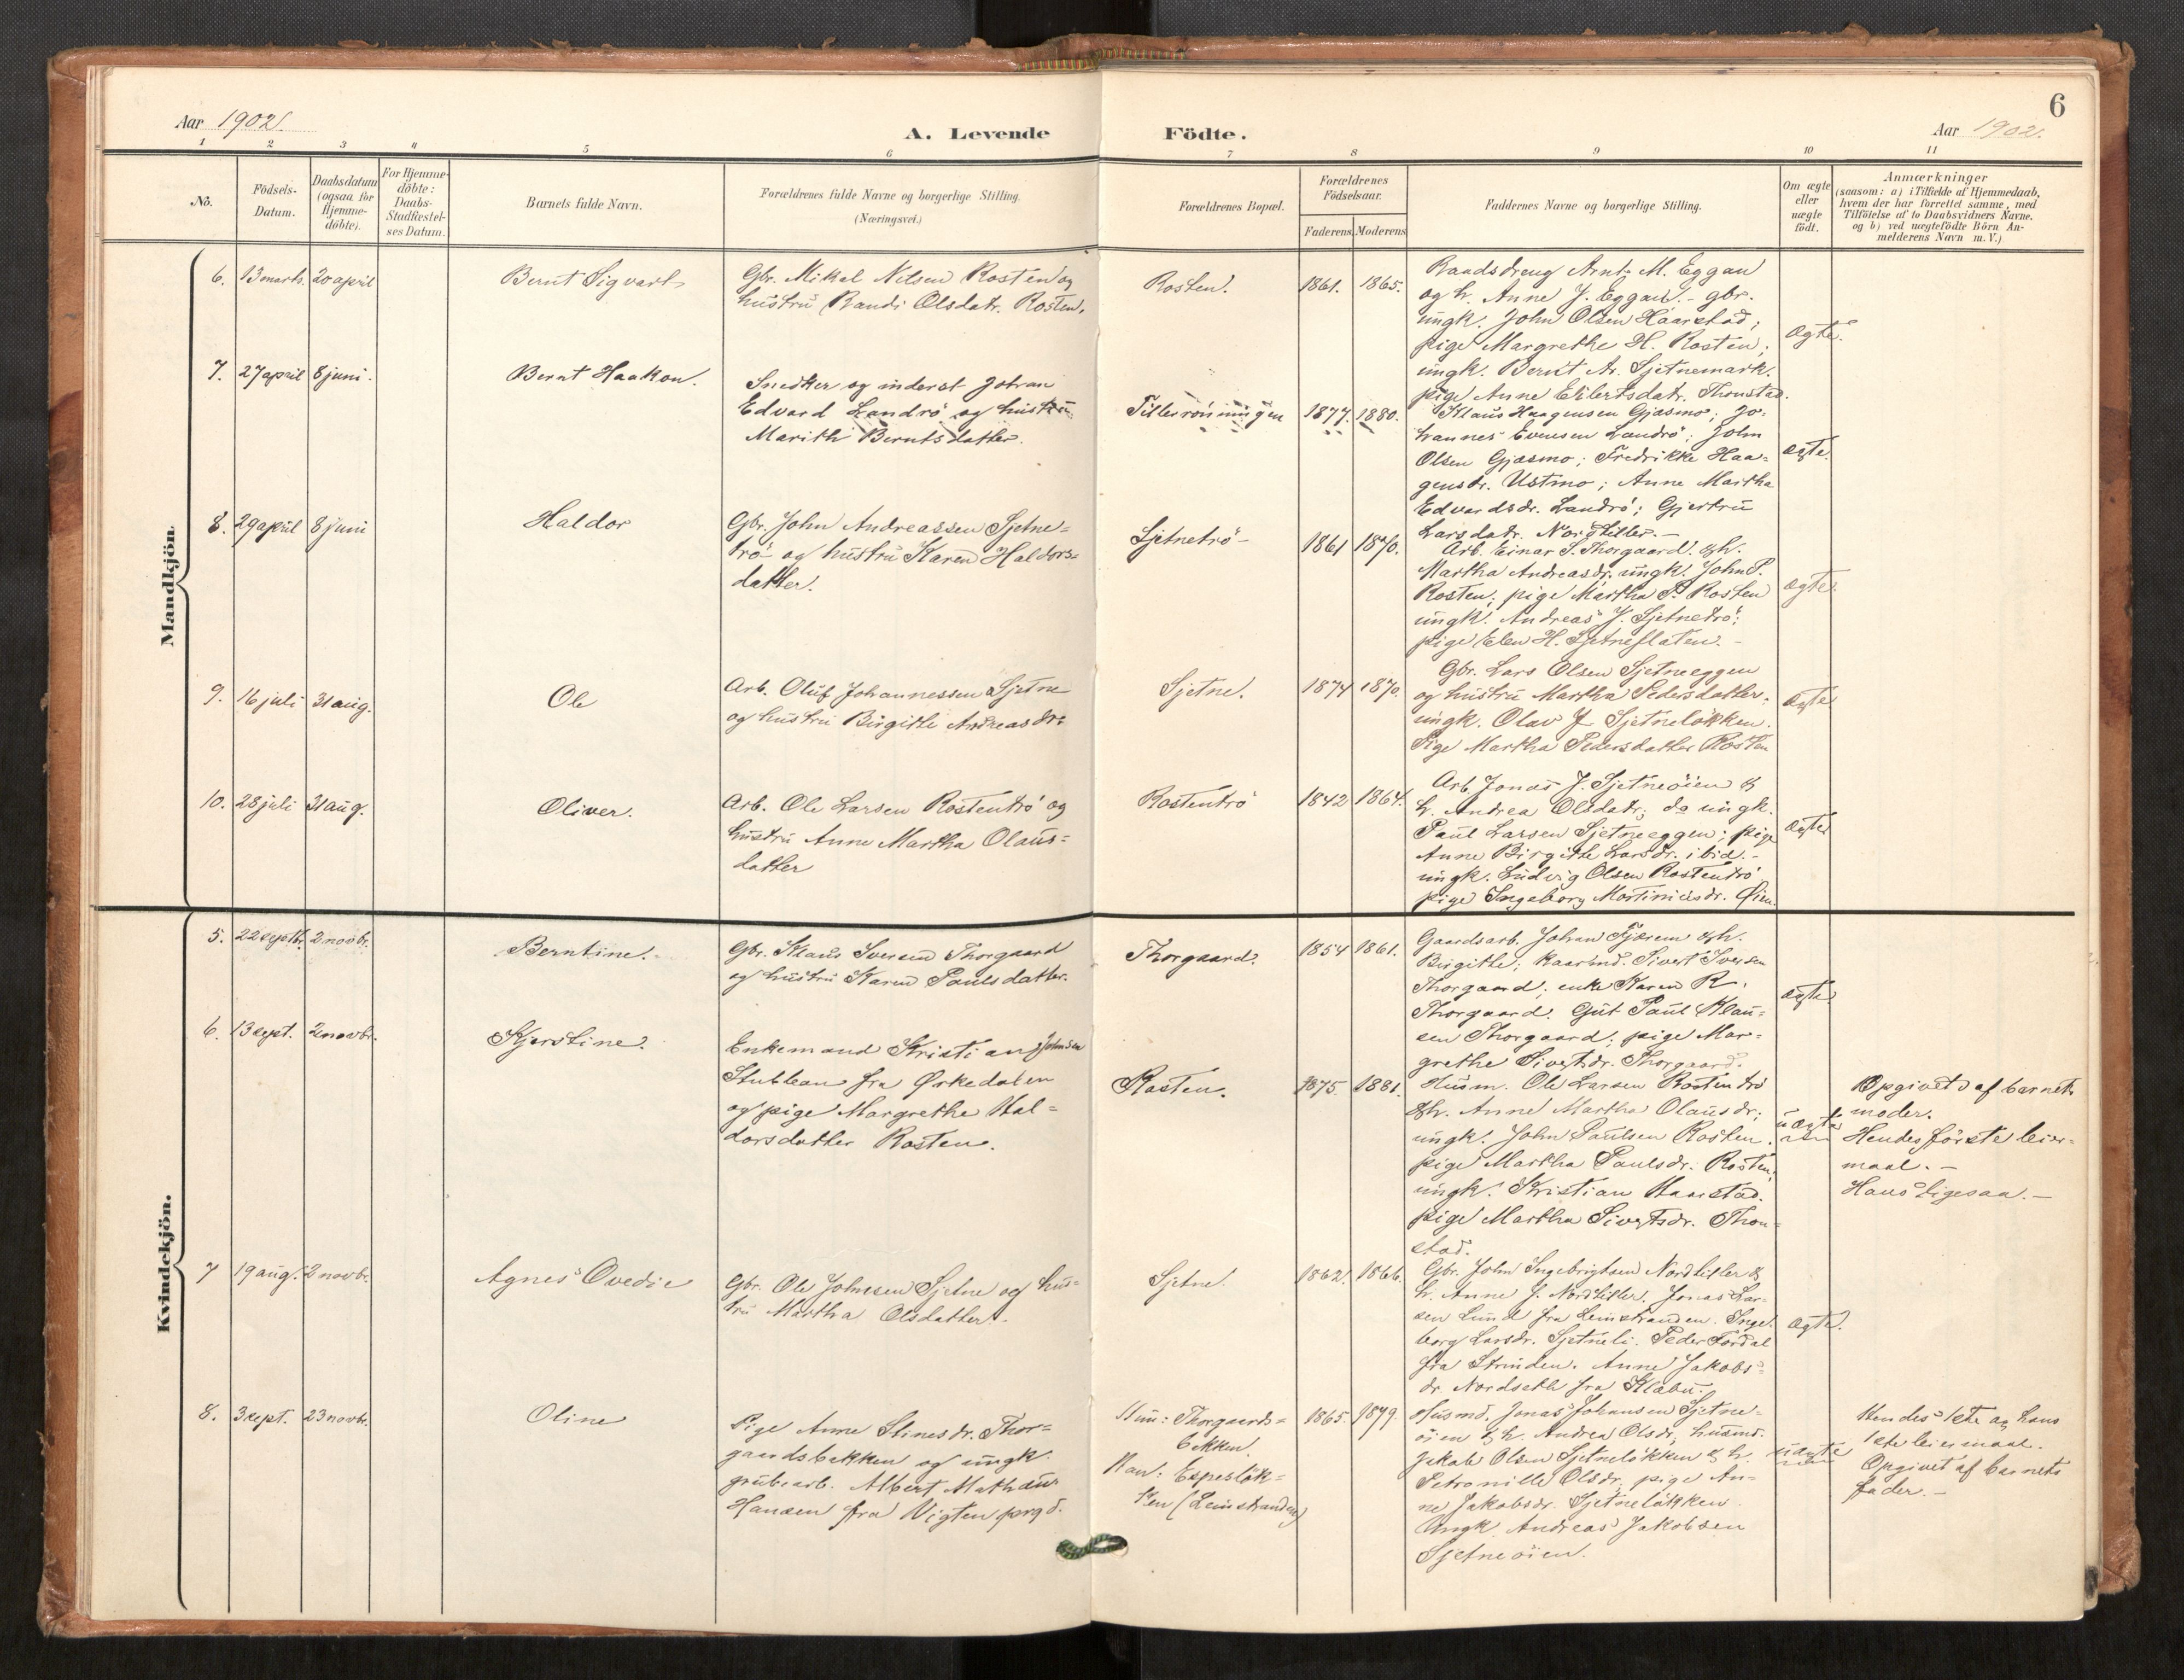 6
Aar 1902.
A. Levende Födte.
Aar 1902.
1 2 3 4 5 6 7 8 9 10 11
No.
Födsels-
Datum.
Daabsdatum
(ogsaa for
Hjemme-
döbte).
For Hjemme-
döbte:
Daabs-
Stadfæstel-
ses Datum.
Barnets fulde Navn.
Forældrenes fulde Navne og borgerlige Stilling.
(Næringsvei.)
Forældrenes Bopæl.
Forældrenes
Födselsaar.
Faderens. Moderens.
Faddernes Navne og borgerlige Stilling.
Om ægte
eller
uægte
födt.
Anmærkninger
(saasom: a) i Tilfælde af Hjemmedaab,
hvem der har forrettet samme, med
Tilföielse af to Daabsvidners Navne,
og b) ved uægtefödte Börn An-
melderens Navn m.V.)
Mandkjön.
6. 13 marts. 20 april
Bernt Sigvart
Gbr. Mikal Nilsen Rosten og
hustru Randi Olsdatr. Rosten.
Rosten.
1861. 1865.
Raadsdreng Arnt M. Eggan
og h. Anne J. Eggan. - gbr.
ungk. John Olsen Haarstad;
pige Margrethe H. Rosten;
ungk. Bernt A. Sjetnemark.
pige Anne Eilertsdatr. Thonstad.
ægte.
7. 27 april 8 juni.
Bernt Haakon.
Snedker og inderst Johan
Edvard Landrö og hustru
Marith Berntsdatter.
Tillerönningen
1877. 1880.
Klaus Haagensen Gjæsmo; Jo-
hannes Evensen Landrö; John
Olsen Gjæsmo; Fredrikke Haa-
gensdr. Ustmo; Anne Martha
Edvardsdr. Landrö; Gjertru
Larsdatr. Nordtiller. -
ægte.
8. 29 april 8 juni
Haldor
Gbr. John Andreassen Sjetne-
trö og hustru Karen Haldors-
datter.
Sjetnetrö -
1861 1870.
Arb. Einar S. Thorgaard. & h.
Martha Andreasdr. ungk. John P.
Rosten; pige Martha P. Rosten
ungk. Andreas J. Sjetnetrö;
pige Elen H. Sjetneflaten. -
ægte.
9. 16 juli 31 aug.
Ole
Arb. Oluf Johannessen Sjetne
og hustru Birgitte Andreasdr.
Sjetne.
1874 1870.
Gbr. Lars Olsen Sjetneeggen
og hustru Martha Pedersdatter.
ungk. Olav J. Sjetnelökken.
Pige Martha Pedersdatter Rosten
ægte
10. 28 juli 31 aug.
Oliver.
Arb. Ole Larsen Rostentrö og
hustru Anne Martha Olaus-
datter
Rostentrö
1842 1864.
Arb. Jonas J. Sjetneöien &
h. Andrea Olsdatr; do ungk.
Paul Larsen Sjetneeggen; pige
Anne Birgitte Larsdr. ibid. -
ungk. Ludvig Olsen Rostentrö
pige Ingeborg Martinusdr. Øien.
ægte
Kvindekjön.
5. 22 septbr. 2 novbr.
Berntine.
Gbr. Klaus Iversen Thorgaard
og hustru Karen Paulsdatter.
Thorgaard.
1854 1861.
Gaardsarb. Johan Fjærem & h.
Birgithe; kaarmd. Sivert Iversen
Thorgaard; enke Karen R.
Thorgaard. Gut Paul Klau-
sen Thorgaard; pige Mar-
grethe Sivertsdr. Thorgaard.
ægte.
6. 13 sept. 2 novbr.
Kjerstine.
Enkemand Kristian Johnsen
Stubban fra Ørkedalen
og pige Margrethe Hal-
dorsdatter Rosten.
Rosten.
1875. 1881.
Husm. Ole Larsen Rostentrö
& h. Anne Martha Olausdr;
ungk. John Paulsen Rosten.
pige Martha Paulsdr. Rosten;
ungk. Kristian Haarstad.
pige Martha Sivertsdr. Thon-
stad.
uægte
Opgivet af barnets
moder.
Hendes förste leier-
maal. -
Hans ligesaa. -
7 19 aug. 2 novbr.
Agnes Ovedie
Gbr. Ole Johnsen Sjetne og hus-
tru Martha Olsdatter.
Sjetne.
1862. 1866.
Gbr. John Ingebrigtsen Nordtiller &
h. Anne J. Nordtiller. Jonas Lar-
sen Lund fra Leinstranden. Inge-
borg Larsdr. Sjetneli. Peder Fördal
fra Strinden. Anne Jakobs-
dr. Nordseth fra Klæbu.
ægte.
8. 3 sept. 23 novbr.
Oline
Pige Anne Stinesdr. Thor-
gaardsbakken og ungk.
grubearb. Albert Mathæus
Hansen fra Vigten prgd.
Hun: Thorgaards-
bakken.
Han: Espeslök-
ken (Leinstranden)
1865. 1879.
Husmd. Jonas Johansen Sjetne-
öien & h. Andrea Olsdr; husmd.
Jakob Olsen Sjetnelökken & h.
Petronille Olsdr, pige An-
ne Jakobsdr. Sjetnelökken.
Ungk. Andreas Jakobsen
Sjetneöien.
uægte
Hendes 1ste og hans
1ste leiermaal.
Opgivet af barnets
fader. -